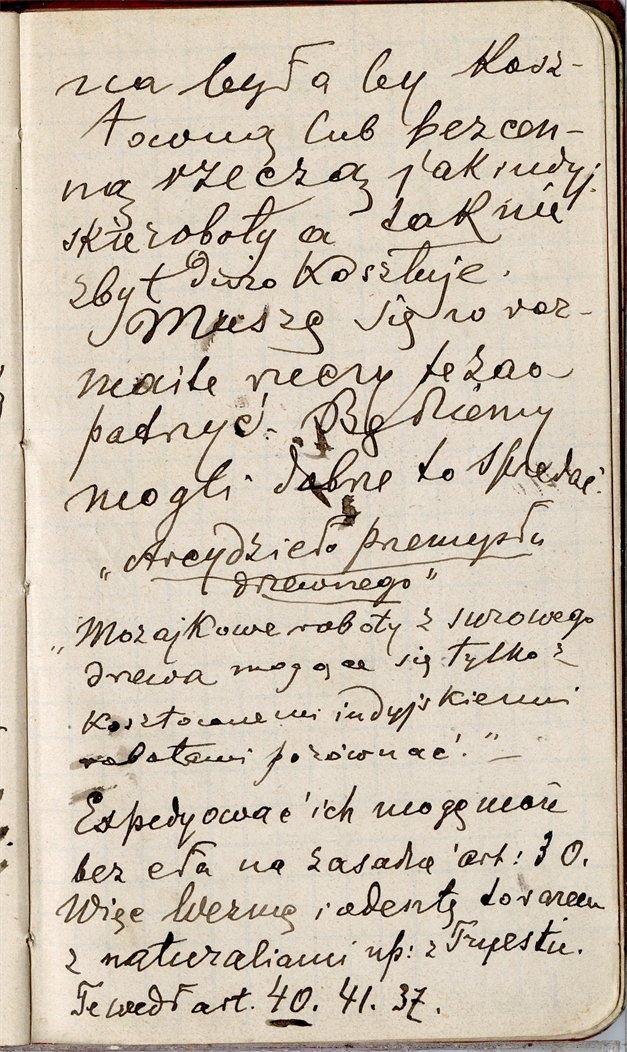 na była by kosz-
towną lub bezcen-
ną rzeczą jak indyj-
skie roboty a tak nie
zbyt dużo kosztuje.
Muszę się w roz-
maite rzeczy też zao
patrzyć. Będziemy
mogli dobrze to sprzedać.
„Arcydzieło przemysłu
drzewnego"
„Mozajkowe roboty z surowego
drzewa mogące się tylko z
kosztownemi indyjskiemi
robotami porównać." —
Expedyować ich mogę może
bez cła na zasadzie art: 30.
Więc wezmę i odeszlę towarem
z naturaliami np: z Tryestu.
Te wedł art. 40. 41. 37.